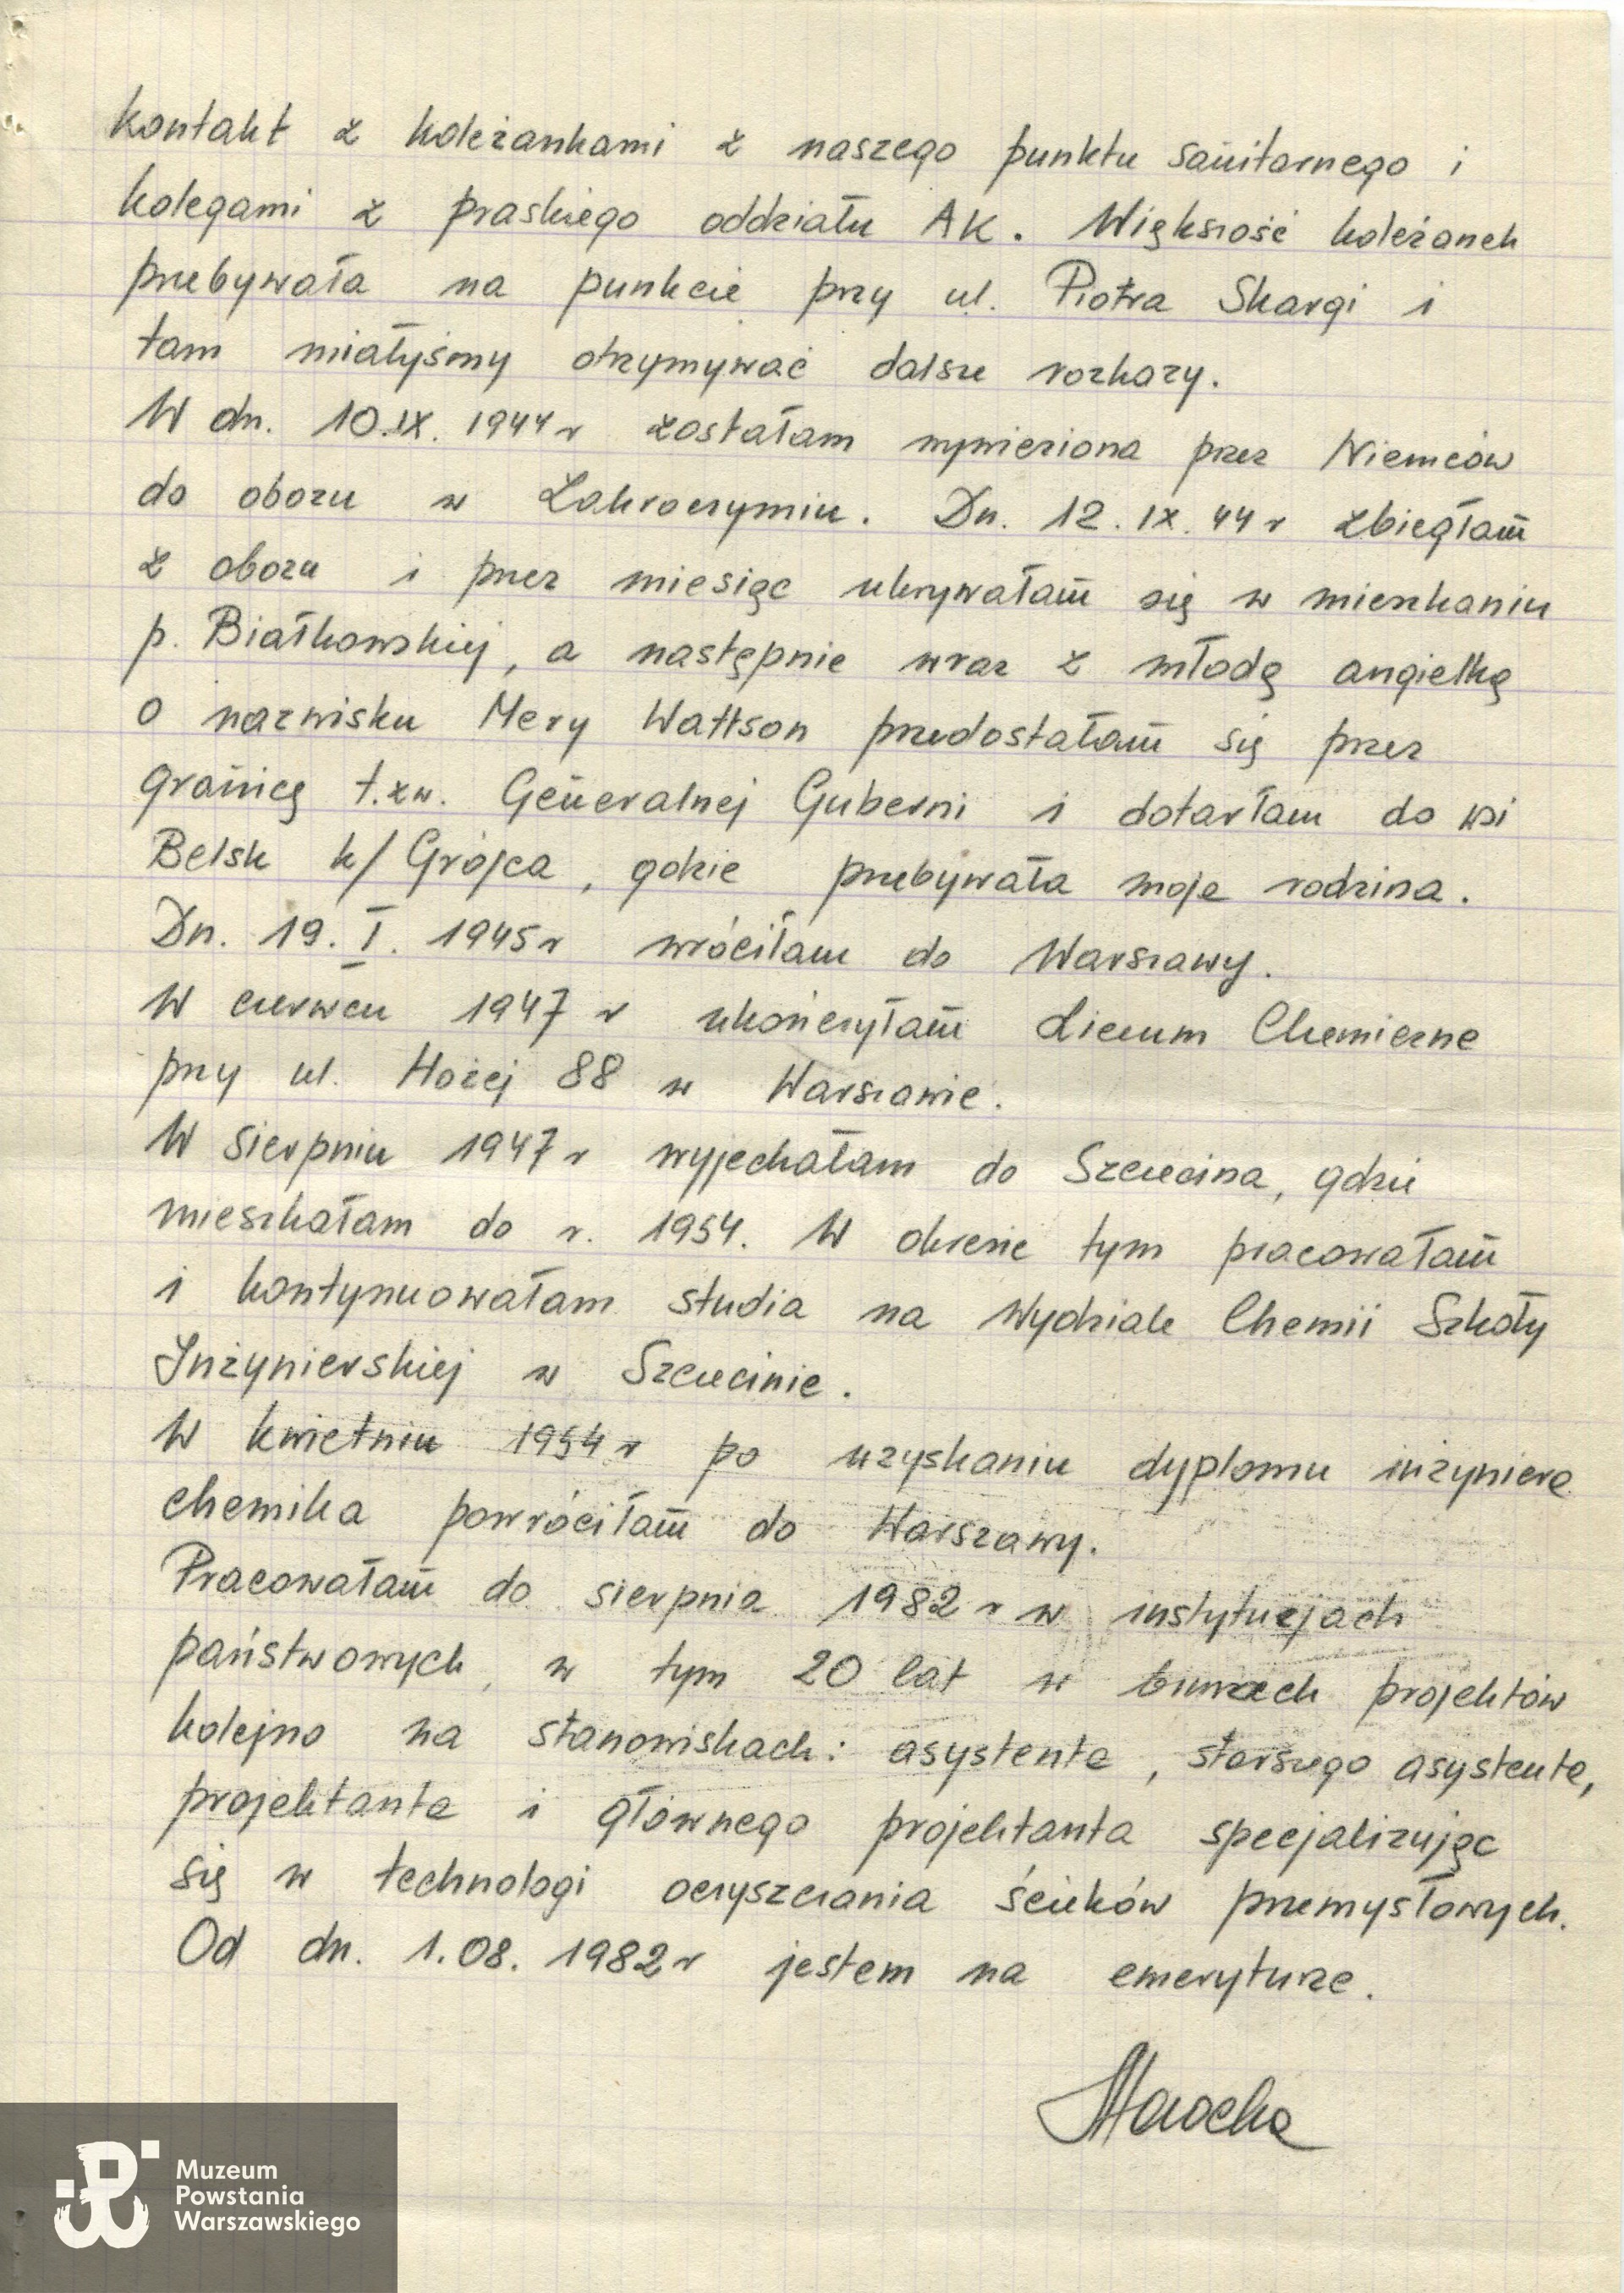 kontakt z koleżankami z naszego punktu sanitarnego i
kolegami z praskiego oddziału AK. Większość koleżanek
przebywała na punkcie przy ul. Piotra Skargi i
tam miałyśmy otrzymywać dalsze rozkazy.
W dn. 10.IX. 1944 r zostałam wywieziona przez Niemców
do obozu w Zakroczymiu. Dn. 12.IX.44 r zbiegłam
z obozu i przez miesiąc ukrywałam się w mieszkaniu
p. Białkowskiej, a następnie wraz z młodą angielką
o nazwisku Mery Wattson przedostałam się przez
granicę t.zw. Generalnej Guberni i dotarłam do wsi
Belsk k/Grójca, gdzie przebywała moja rodzina.
Dn. 19.I. 1945 r wróciłam do Warszawy.
W czerwcu 1947 r ukończyłam Liceum Chemiczne
przy ul. Hożej 88 w Warszawie.
W sierpniu 1947 r wyjechałam do Szczecina, gdzie
mieszkałam do r. 1954. W okresie tym pracowałam
i kontynuowałam studia na Wydziale Chemii Szkoły
Inżynierskiej w Szczecinie.
W kwietniu 1954 r po uzyskaniu dyplomu inżyniera
chemika powróciłam do Warszawy.
Pracowałam do sierpnia 1982 r w instytucjach
państwowych, w tym 20 lat w biurach projektów
kolejno na stanowiskach: asystenta, starszego asystenta,
projektanta i głównego projektanta specjalizując
się w technologi oczyszczania ścieków przemysłowych.
Od dn. 1.08. 1982 r jestem na emeryturze.
Muzeum
Powstania
Warszawskiego